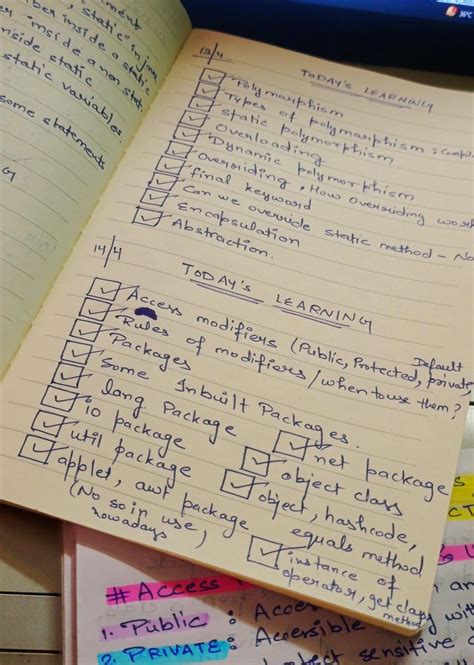 "static" in java
inside a static
inside a non stati
inside static
static variables.
some statements
12/4
TODAY'S LEARNING
Polymorphism
Types of polymorphism :
Static polymorphism
Overloading
Dynamic polymorphism
Overriding, How overriding work
final keyword
Can we override static method - No
Encapsulation
Abstraction.
14/4
TODAY'S LEARNING
Default
Access modifiers (Public, Protected, private,
Rules of modifiers / when to use them?
Packages
Some Inbuilt Packages.
lang Package
net package
io package
object class
util package
object, hashcode,
equals method
applet, awt package
(No so in use
nowadays)
instance of
operator, get class
method
# Access
1. Public : Access
2. PRIVATE : Accessible
sensitive